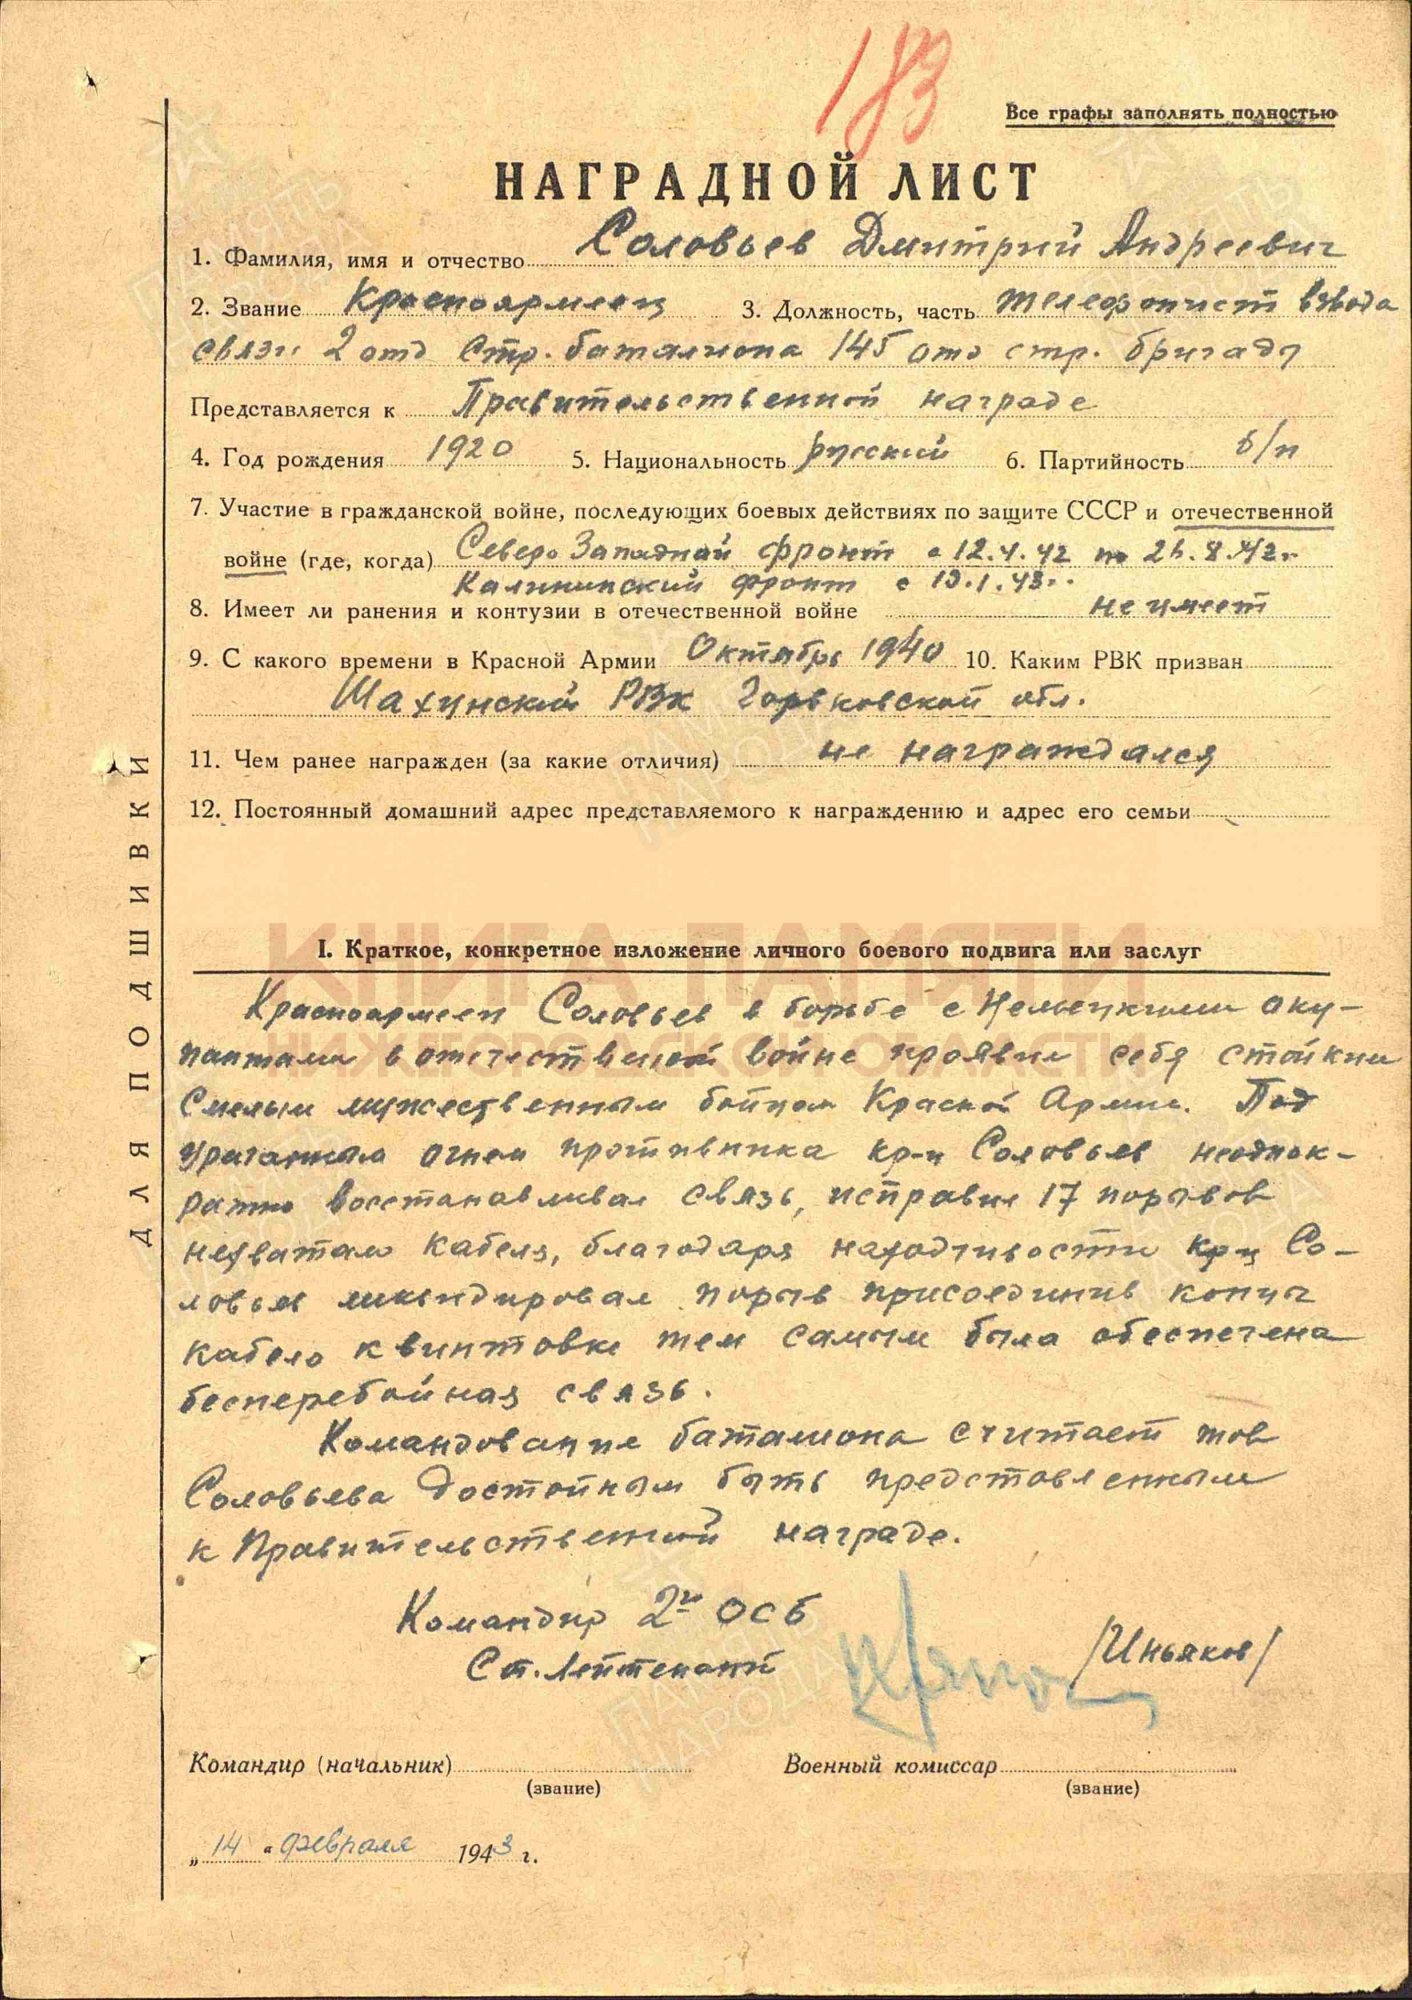 183
Все графы заполнять полностью
НАГРАДНОЙ ЛИСТ
1. Фамилия, имя и отчество Соловьев Дмитрий Андреевич
2. Звание Красноармеец 3. Должность, часть телефонист взвода
связи 2 отд стр. баталиона 145 отд стр. бригады
Представляется к Правительственной награде
4. Год рождения 1920 5. Национальность русский 6. Партийность б/п
7. Участие в гражданской войне, последующих боевых действиях по защите СССР и отечественной
войне (где, когда) Северо Западный фронт с 12.4.42 по 8.42г.
Калининский фронт с 1.43г.
8. Имеет ли ранения и контузии в отечественной войне не имеет
9. С какого времени в Красной Армии Октябрь 1940 10. Каким РВК призван
Шахунский РВК Горьковской обл.
11. Чем ранее награжден (за какие отличия) не награждался
12. Постоянный домашний адрес представляемого к награждению и адрес его семьи
КНИГА ПАМЯТИ
НИЖЕГОРОДСКОЙ ОБЛАСТИ
I. Краткое, конкретное изложение личного боевого подвига или заслуг
Красноармеец Соловьев в борьбе с Немецкими оку-
пантами в отечественной войне проявил себя стойким
смелым мужественным бойцом Красной Армии. Под
ураганным огнем противника кр-ц Соловьев неоднок-
ратно восстанавливал связь, исправил 17 порывов
нехватало кабеля, благодаря находчивости кр-ц Со-
ловьев ликвидировал порыв присоединив концы
кабеля к винтовке тем самым была обеспечена
бесперебойная связь.
Командование баталиона считает тов
Соловьева достойным быть представленным
к Правительственной награде.
Командир 2й ОСБ
Ст. Лейтенант /Иньяков/
Командир (начальник) Военный комиссар
(звание) (звание)
„14" февраля 1943 г.
ДЛЯ ПОДШИВКИ
ПАМЯТЬ НАРОДА